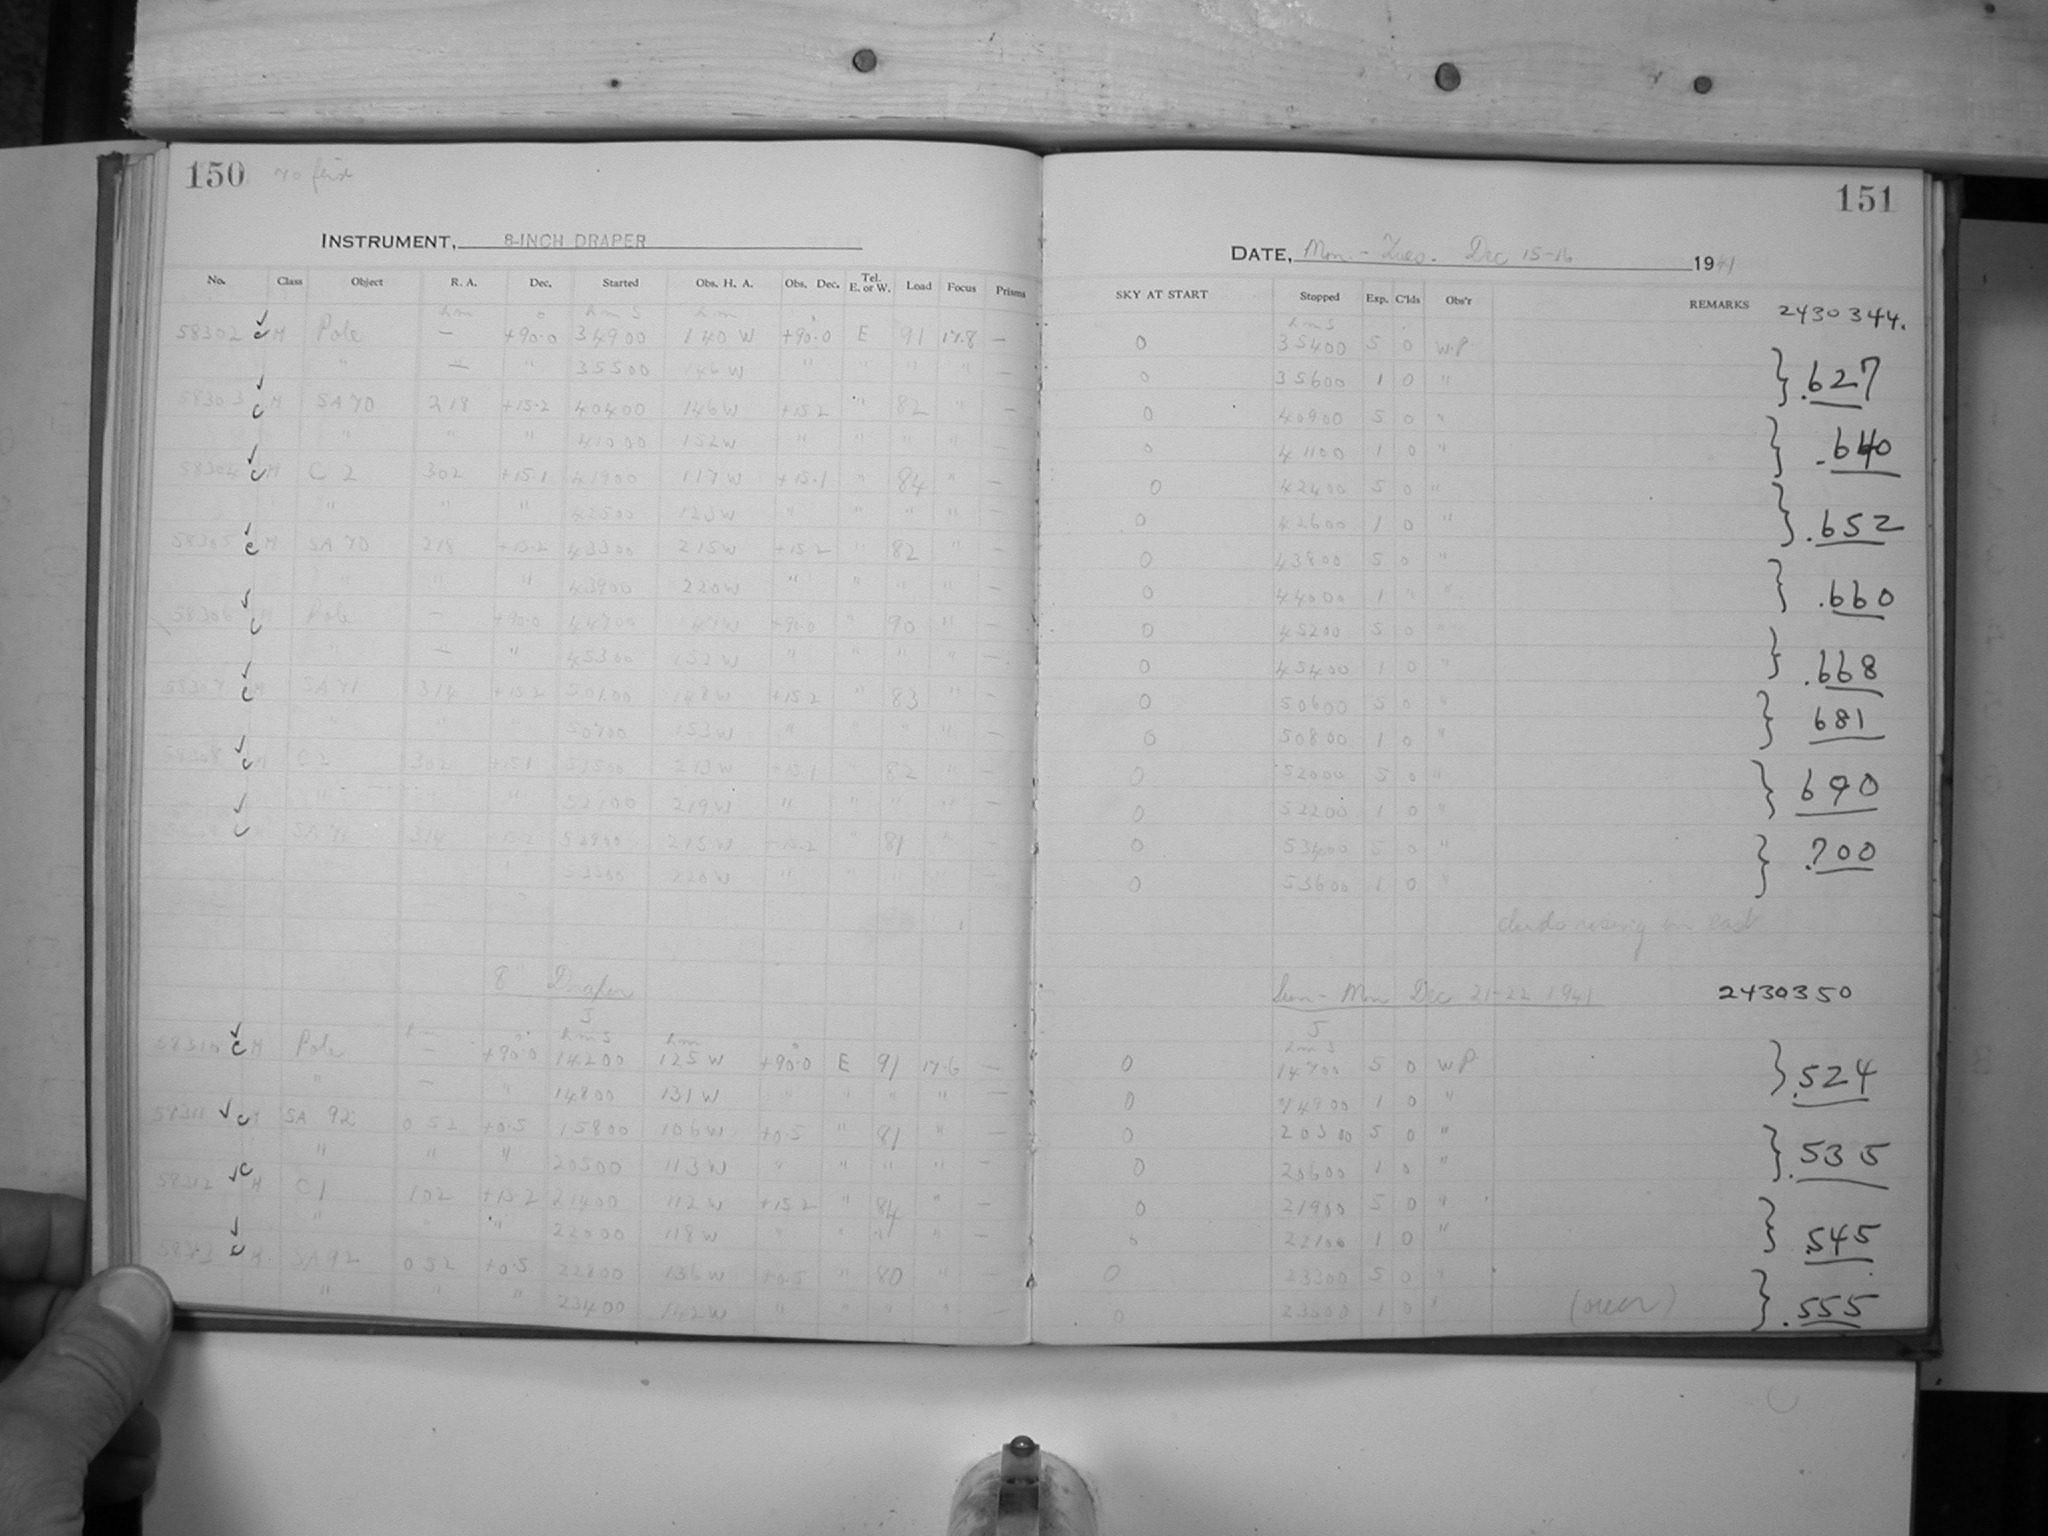 150
INSTRUMENT, 8-INCH DRAPER
No. Class Object R. A. Dec. Started Obs. H. A. Obs. Dec. Tel. E. or W. Load Focus Prisms
h m o h m s h m o
58302 c H Pole — +90.0 34900 140 W +90.0 E 91 17.8 —
" — " 35500 146 W " " " " —
58303 c H SA 70 218 +15.2 40400 146 W +15.2 " 82 " —
" " " 41000 152 W " " " " —
58304 c H C 2 302 +15.1 41900 117 W +15.1 " 84 " —
" " " 42500 123 W " " " " —
58305 c H SA 70 218 +15.2 43300 215 W +15.2 " 82 " —
" " " 43900 220 W " " " " —
58306 c H Pole — +90.0 44700 147 W +90.0 " 90 " —
" — " 45300 152 W " " " " —
58307 c H SA 71 314 +15.2 50100 148 W +15.2 " 83 " —
" " " 50700 153 W " " " " —
58308 c H C 2 302 +15.1 51500 213 W +15.1 " 82 " —
" " " 52100 219 W " " " " —
c H SA 71 314 +15.2 52900 215 W +15.2 " 81 " —
" " " 53500 220 W " " " " —
8" Draper
58310 c H Pole — +90.0 14200 125 W +90.0 E 91 17.6 —
" — " 14800 131 W " " " " —
58311 c H SA 92 0 52 +0.5 15800 106 W +0.5 " 81 " —
" " " 20500 113 W " " " " —
58312 c H C 1 102 +15.2 21400 112 W +15.2 " 84 " —
" " " 22000 118 W " " " " —
58313 c H. SA 92 0 52 +0.5 22800 136 W +0.5 " 80 " —
" " " 23400 142 W " " " " —
151
DATE, Mon. - Tues. Dec 15-16 1941
SKY AT START Stopped Exp. C'lds Obs'r REMARKS 2430344.
h m s
0 35400 5 0 W.P.
0 35600 1 0 " } .627
0 40900 5 0 "
0 41100 1 0 " } .640
0 42400 5 0 "
0 42600 1 0 " } .652
0 43800 5 0 "
0 44000 1 " " } .660
0 45200 5 0 "
0 45400 1 0 " } .668
0 50600 5 0 "
0 50800 1 0 " } 681
0 52000 5 0 "
0 52200 1 0 " } 690
0 53400 5 0 "
0 53600 1 0 " } .700
clouds rising in east
Sun - Mon Dec 21-22 1941 2430350
h m s
0 14700 5 0 W.P.
0 14900 1 0 " } .524
0 20300 5 0 "
0 20600 1 0 " } .535
0 21900 5 0 "
0 22100 1 0 " } .545
0 23300 5 0 "
0 23500 1 0 " (over) } .555